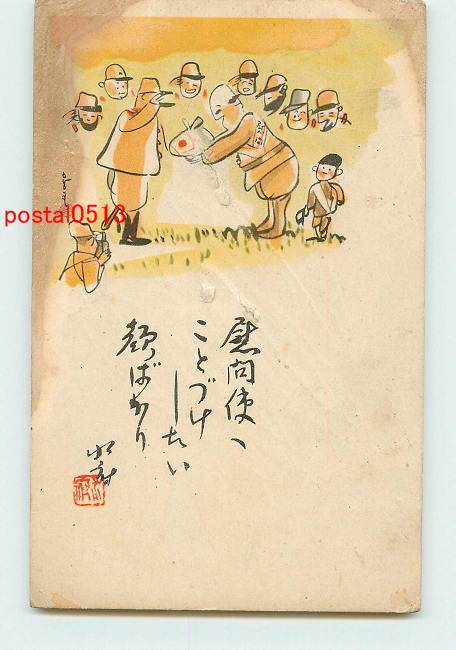 慰問使へ
ことづけ
したい
顔ばかり
水府
postal0513